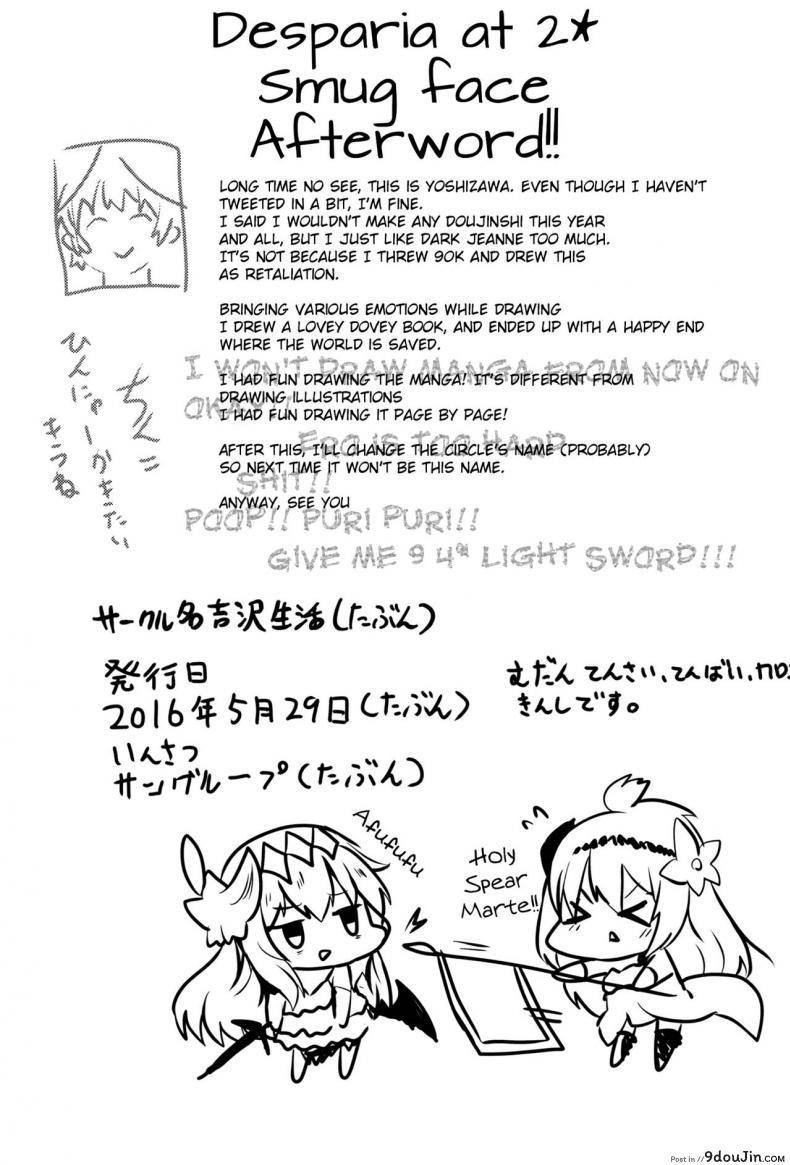 Desparia at 2★
Smug face
Afterword!!
LONG TIME NO SEE, THIS IS YOSHIZAWA. EVEN THOUGH I HAVEN'T
TWEETED IN A BIT, I'M FINE.
I SAID I WOULDN'T MAKE ANY DOUJINSHI THIS YEAR
AND ALL, BUT I JUST LIKE DARK JEANNE TOO MUCH.
IT'S NOT BECAUSE I THREW 90K AND DREW THIS
AS RETALIATION.
BRINGING VARIOUS EMOTIONS WHILE DRAWING
I DREW A LOVEY DOVEY BOOK, AND ENDED UP WITH A HAPPY END
WHERE THE WORLD IS SAVED.
I WON'T DRAW MANGA FROM NOW ON
OKAY!!
I HAD FUN DRAWING THE MANGA! IT'S DIFFERENT FROM
DRAWING ILLUSTRATIONS
I HAD FUN DRAWING IT PAGE BY PAGE!
ERO IS TOO HARD
SHIT!!
AFTER THIS, I'LL CHANGE THE CIRCLE'S NAME (PROBABLY)
SO NEXT TIME IT WON'T BE THIS NAME.
ANYWAY, SEE YOU
POOP!! PURI PURI!!
GIVE ME 9 4* LIGHT SWORD!!!
ちんこ
ひんにゅーかきたい
きうね
サークル名吉沢生活(たぶん)
発行日
2016年5月29日(たぶん)
いんさつ
サングループ(たぶん)
むだんてんさい、てんばい、
きんしです。
Afufufu
Holy
Spear
Marte!!
Post in // 9douJin.com